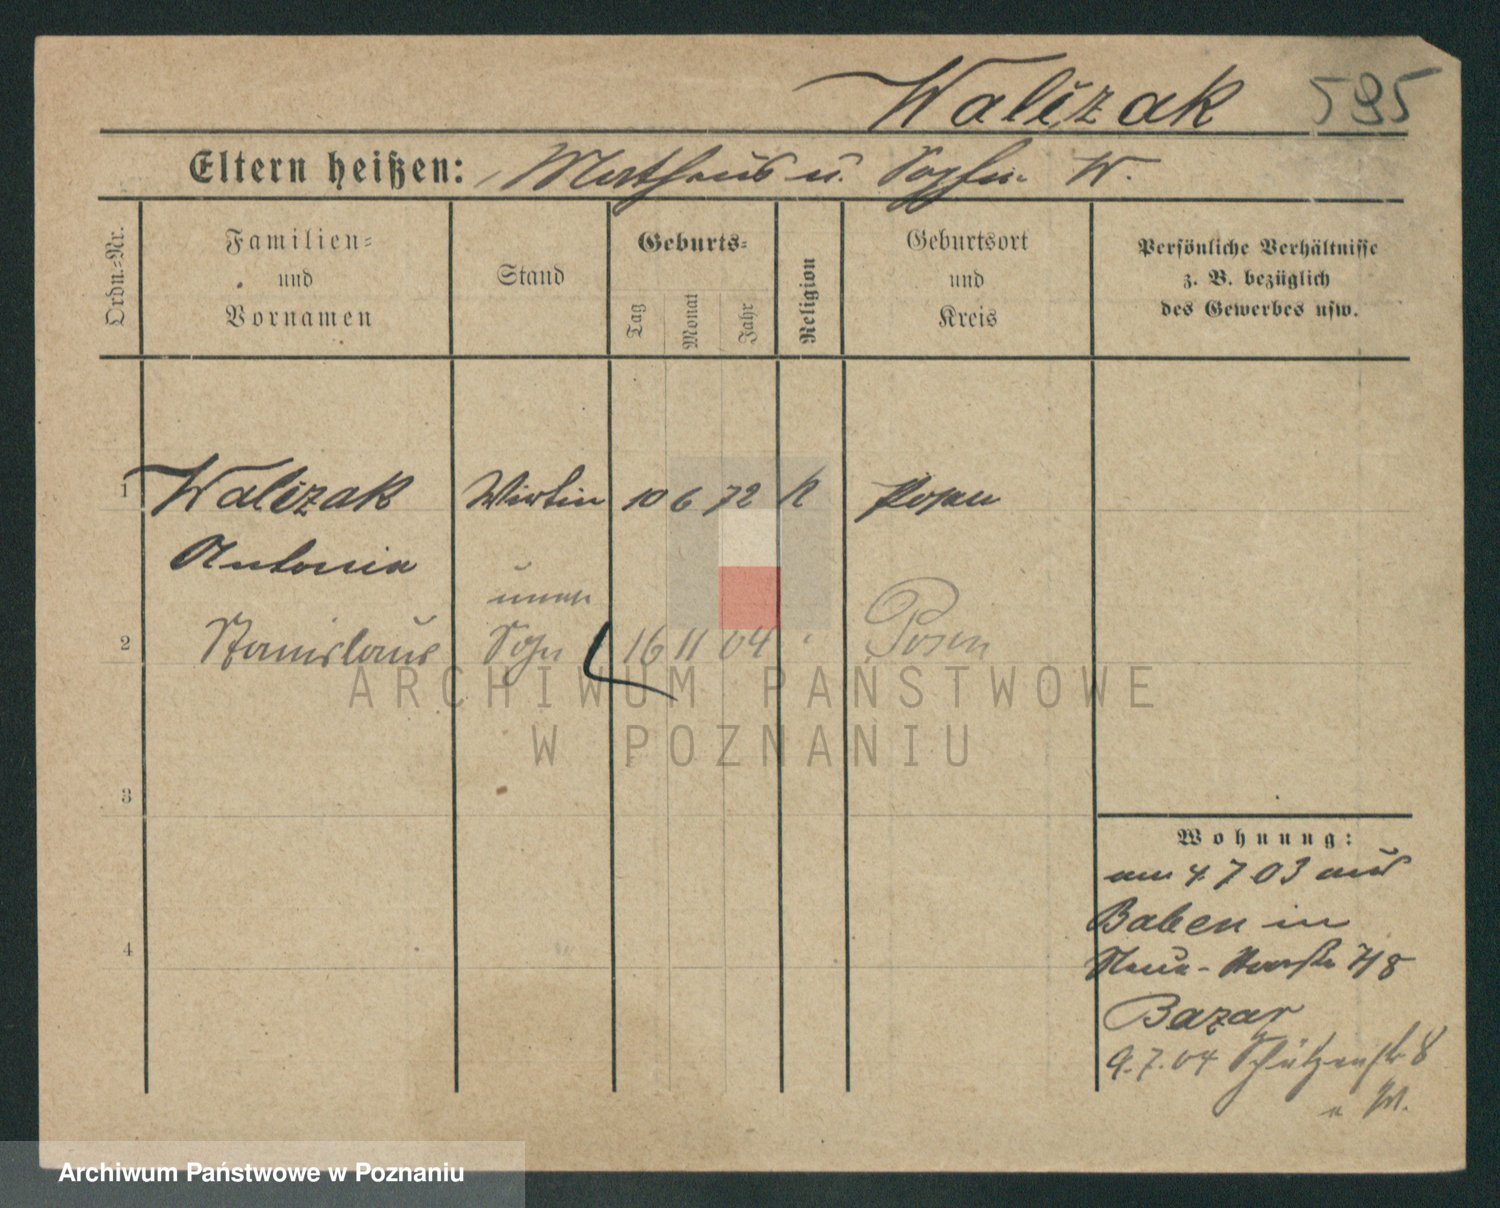 Walczak 595
Eltern heißen: Mathäus u. Sophie W.
Ordn.-Nr.
Familien-
und
Vornamen
Stand
Geburts-
Tag
Monat
Jahr
Religion
Geburtsort
und
Kreis
Persönliche Verhältnisse
z. B. bezüglich
des Gewerbes usw.
1 Walczak Wirtin 10 6 72 K Posen
Antonia
unehl
2 Stanislaus Sohn 16 11 04 " Posen
ARCHIWUM PAŃSTWOWE
W POZNANIU
3
4
Wohnung:
am 4. 7 03 aus
in
Neue-Straße 7/8
Bazar
9.7.04 Schützenstr 8
Archiwum Państwowe w Poznaniu